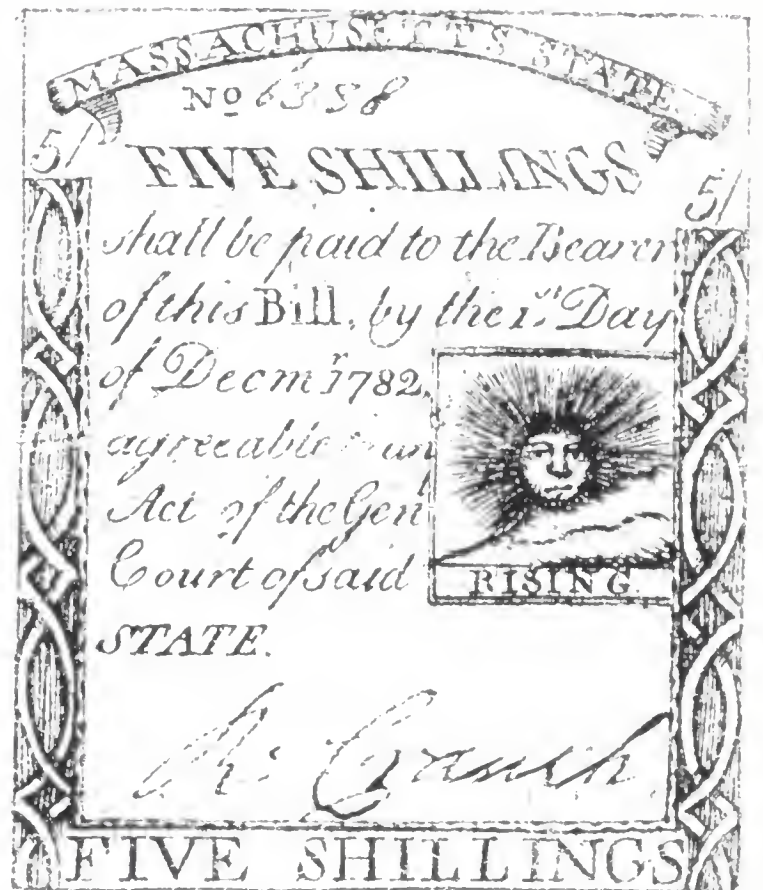 MASSACHUSETTS STATE.
No 6358
5/
FIVE SHILLINGS
5/
shall be paid to the Bearer
of this Bill, by the 1st Day
of Decmr 1782,
agreeable to an
Act of the Genl
Court of said
STATE.
RISING
R. Cranch
FIVE SHILLINGS